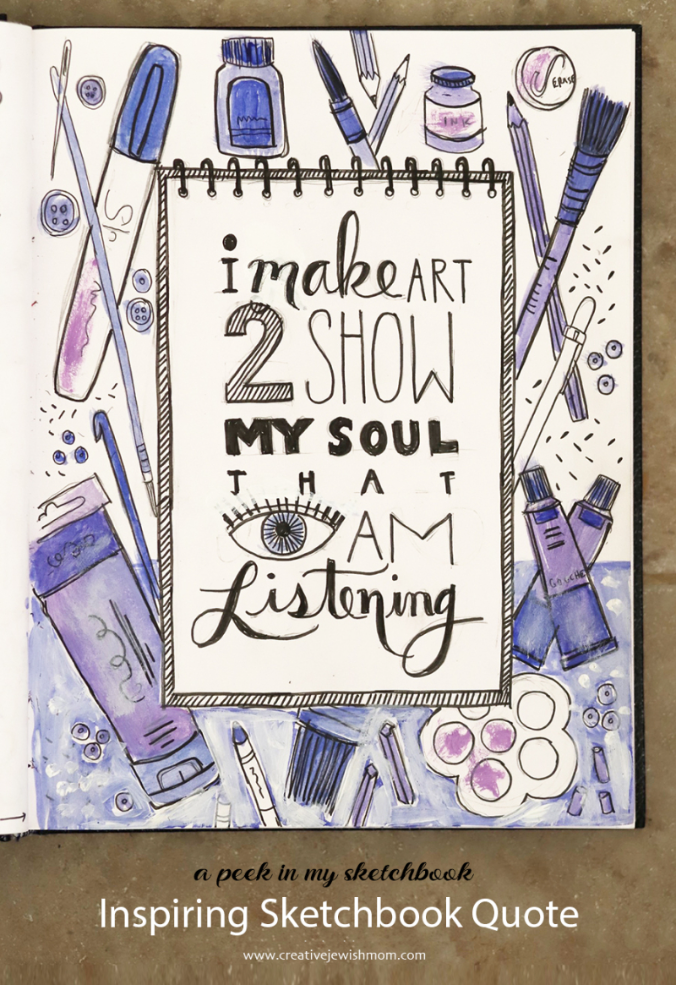 ERASE
INK
i make ART
2 SHOW
MY SOUL
THAT
AM
Listening
GOUCHE
a peek in my sketchbook
Inspiring Sketchbook Quote
www.creativejewishmom.com